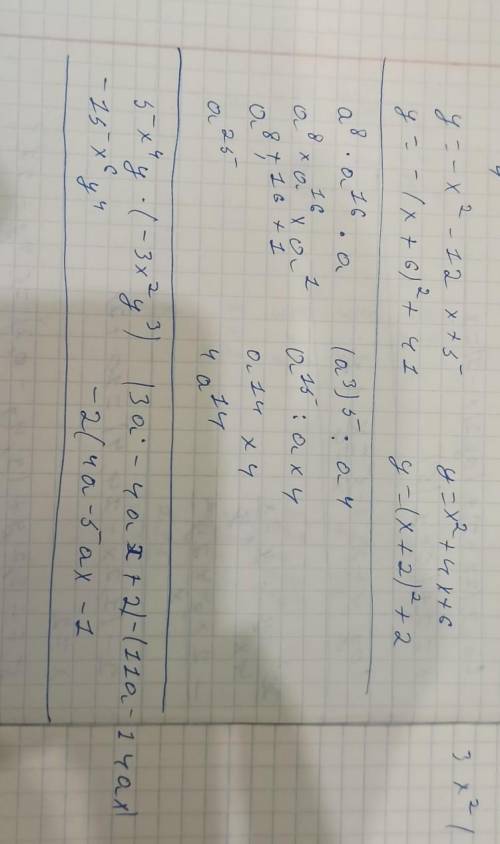 y = - x² - 12 x + 5
y = - (x + 6)² + 41
y = x² + 4x + 6
y = (x + 2)² + 2
a⁸ · a¹⁶ · a
a⁸ × a¹⁶ × a¹
a⁸ + 16 + 1
a²⁵
(a³)5 : a4
a¹⁵ : a × 4
a¹⁴ × 4
4a¹⁴
5x⁴y · (-3x²y³)
-15x⁶y⁴
(3a - 4ax + 2) - (11a - 14ax)
-2(4a - 5ax - 1
3x² (